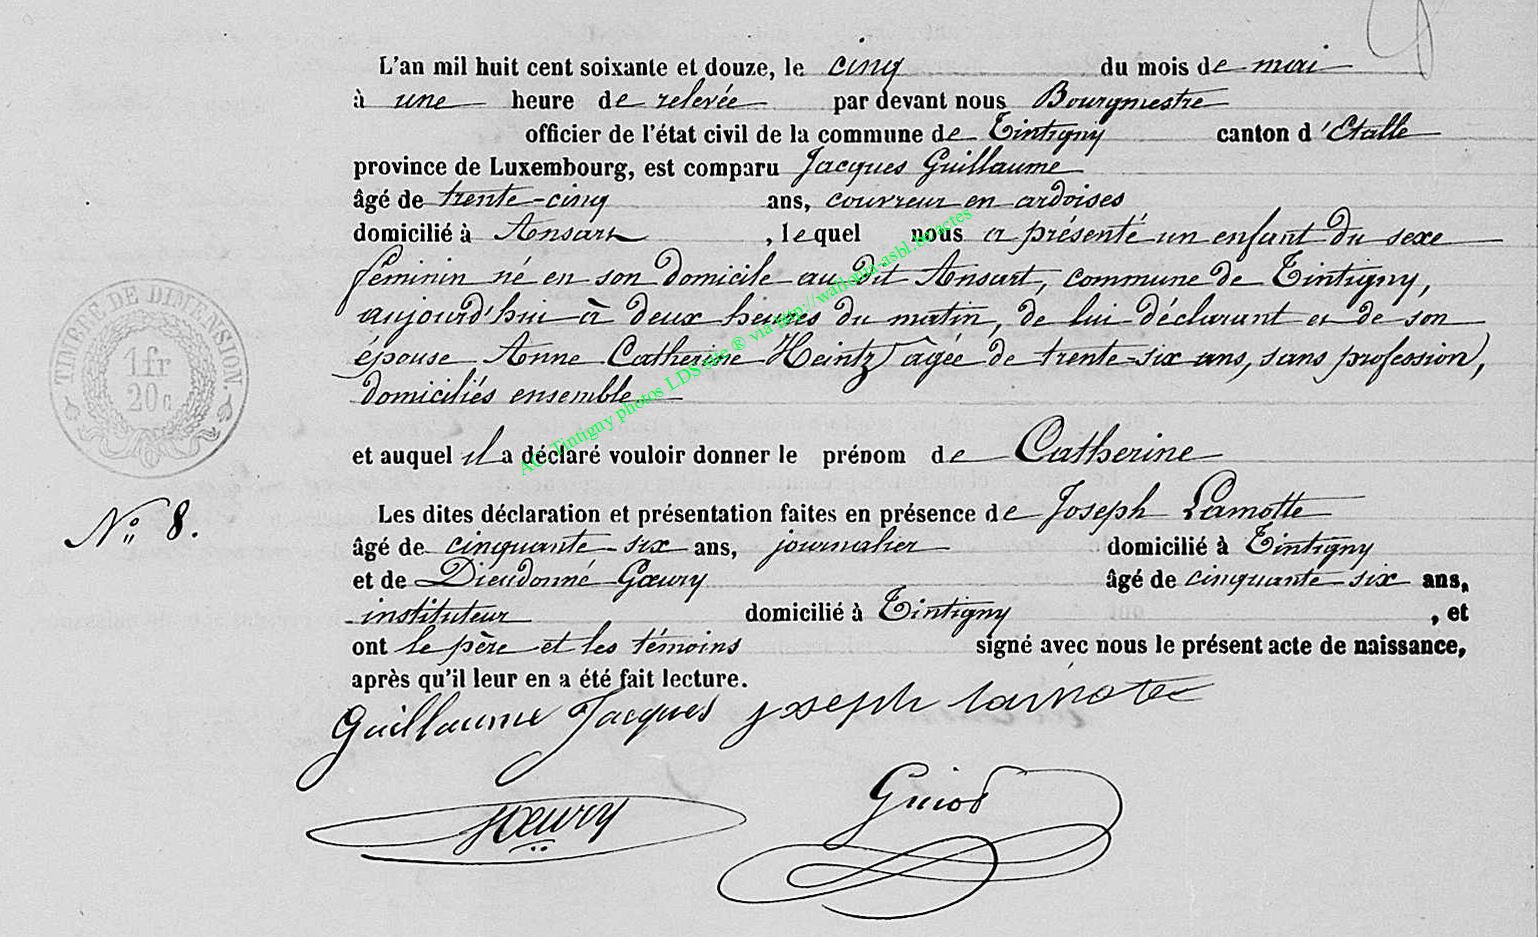 L'an mil huit cent soixante et douze, le cinq du mois de mai
à une heure de relevée par devant nous Bourgmestre
officier de l'état civil de la commune de Tintigny canton d'Etalle
province de Luxembourg, est comparu Jacques Guillaume
âgé de trente-cinq ans, couvreur en ardoises
domicilié à Ansart, lequel nous a présenté un enfant du sexe
féminin né en son domicile au dit Ansart, commune de Tintigny,
aujourd'hui à deux heures du matin, de lui déclarant et de son
épouse Anne Catherine Heintz, âgée de trente-six ans, sans profession,
domiciliés ensemble
et auquel il a déclaré vouloir donner le prénom de Catherine
TIMBRE DE DIMENSION.
1 fr
20 c
AC Tintigny photos LDS site ® via http://wallonia-asbl.be/actes
No 8.
Les dites déclaration et présentation faites en présence de Joseph Lamotte
âgé de cinquante-six ans, journalier domicilié à Tintigny
et de Dieudonné Gœury âgé de cinquante six ans,
instituteur domicilié à Tintigny, et
ont le père et les témoins signé avec nous le présent acte de naissance,
après qu'il leur en a été fait lecture.
Guillaume Jacques joseph lamotte
Gœury